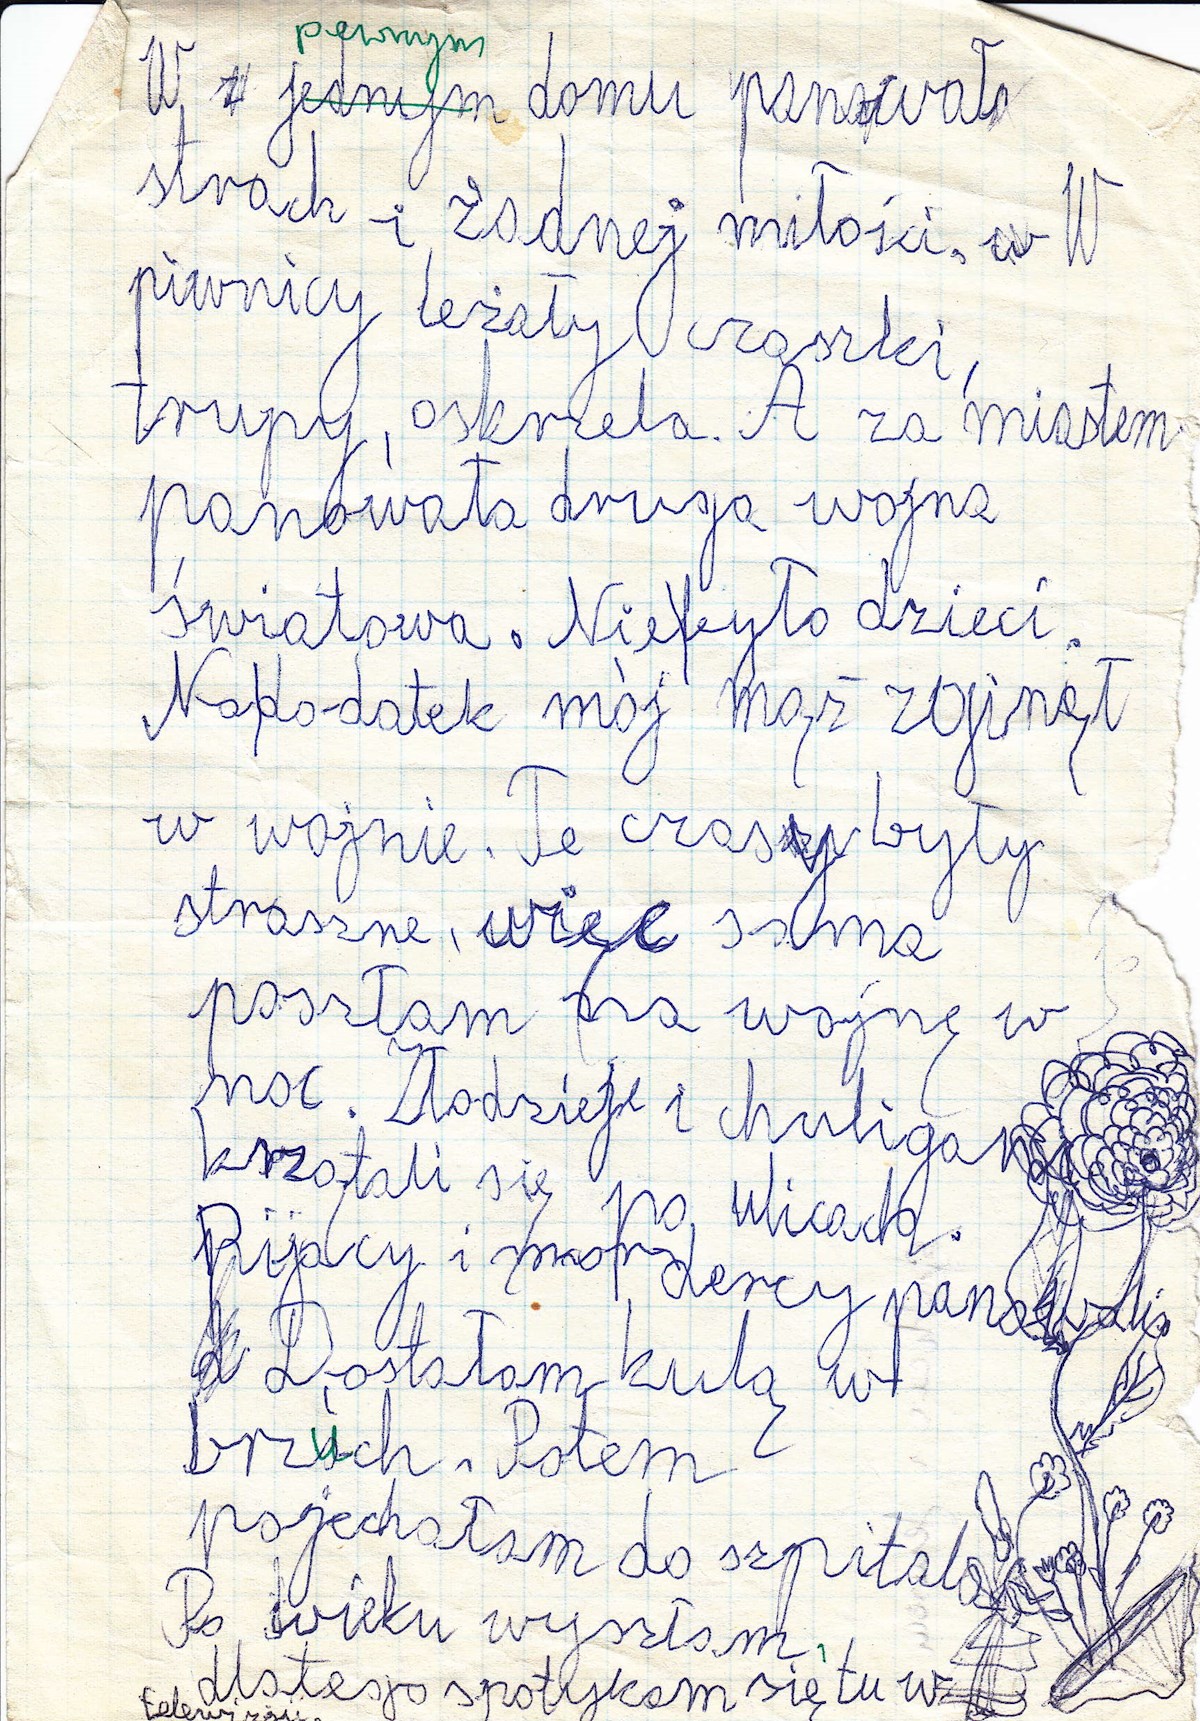 pewnym
W jednym domu panował
strach i żadnej miłości. W
piwnicy leżały czaszki,
trupy, oskrzela. A za miastem
panowała druga wojna
światowa. Nie było dzieci.
Nadodatek mój mąż zginął
w wojnie. Te czasy były
straszne, więc sama
poszłam na wojnę w
noc. Złodzieje i chuligani
krzątali się po ulicach.
Pijacy i mordercy panowali.
Dostałam kulą w
brzuch. Potem
pojechałam do szpitala
Po wieku wyszłam,
dlatego spotykam się tu w
telewizji.